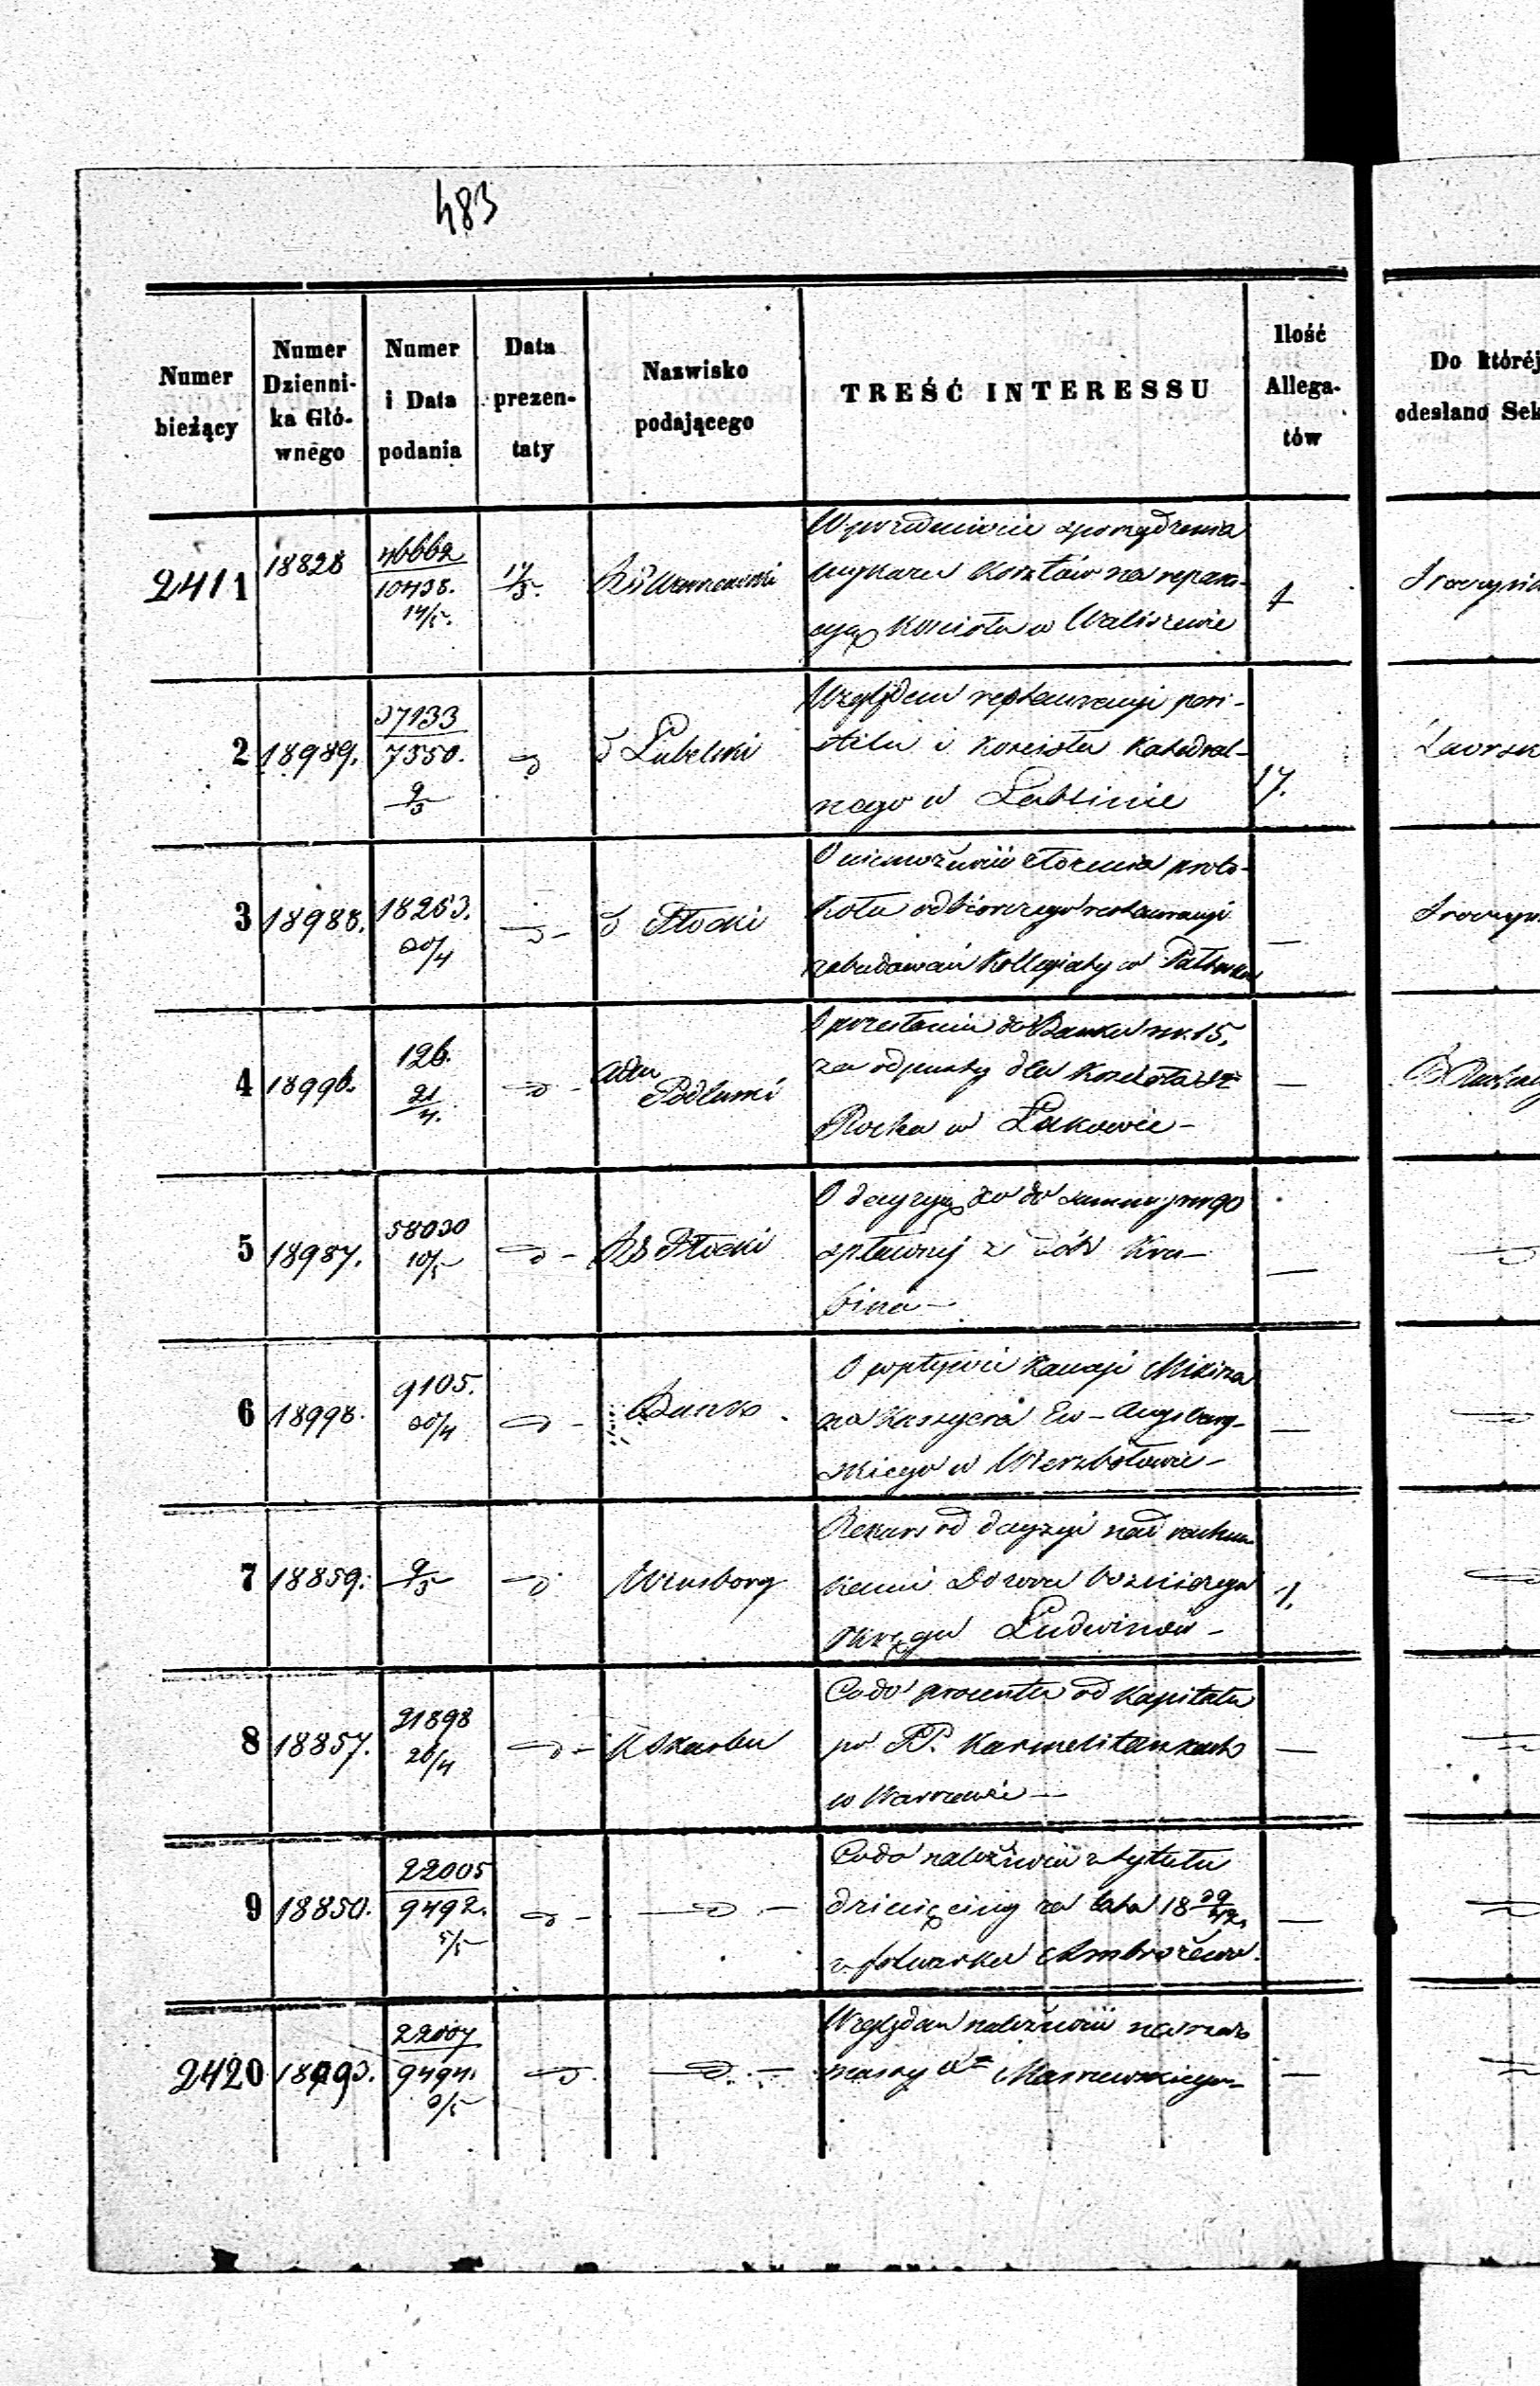 483
Numer bieżący
Numer Dzienni-ka Głó-wnego
Numer i Data podania
Data prezen-taty
Nazwisko podającego
TREŚĆ INTERESSU
Ilość Allega-tów
Do któréj
odesłano Sek
2411 18828 46662 10438. 14/5. 17/5. RG Warszawski
W przedmiocie sporządzenia
wykazu kosztów na repara-
cyą Kościoła w Waliszewie
1
2 18989. 37133 7550. 9/5 d Lubelski
Względem restauracyi peri-
stilu i Kościoła Katedral-
nego w Lublinie
17.
3 18988. 18263. 20/4 d Płocki
O niemożności złożenia proto-
kołu odbiorczego restauracyi
zabudowań Kollegiaty w
4 18996. 126. 21/4. Adm Podlaski
O przesłaniu do Banku rs. 15,
za odpusty dla Kościoła St
Rocha w Łukowie -
5 18987. 58030 10/5 RG Płocki
O decyzyą co do summy rs 90
spławnej z dóbr Kra-
bina -
6 18998. 9105. 20/4 Bank
O wpływie Kaucyi
na Kassyera Ew - Augsburg-
skiego w Wierzbołowie -
7 18859. 9/5
Rekurs od decyzyi nad rachun
kami Dozoru bożniczego
Okręgu Ludwinów -
1.
8 18857. 21898 26/4 K Skarbu
Co do procentu od Kapitału
po PP. Karmelitankach
w Warszawie -
9 18850. 22005 9492. 5/5
Co do należności z tytułu
dziesięciny za lata 18 39/42.
z folwarku Ambrożewo.
2420 18893. 22007 9494. 6/5
Względem należności na rzecz
massy